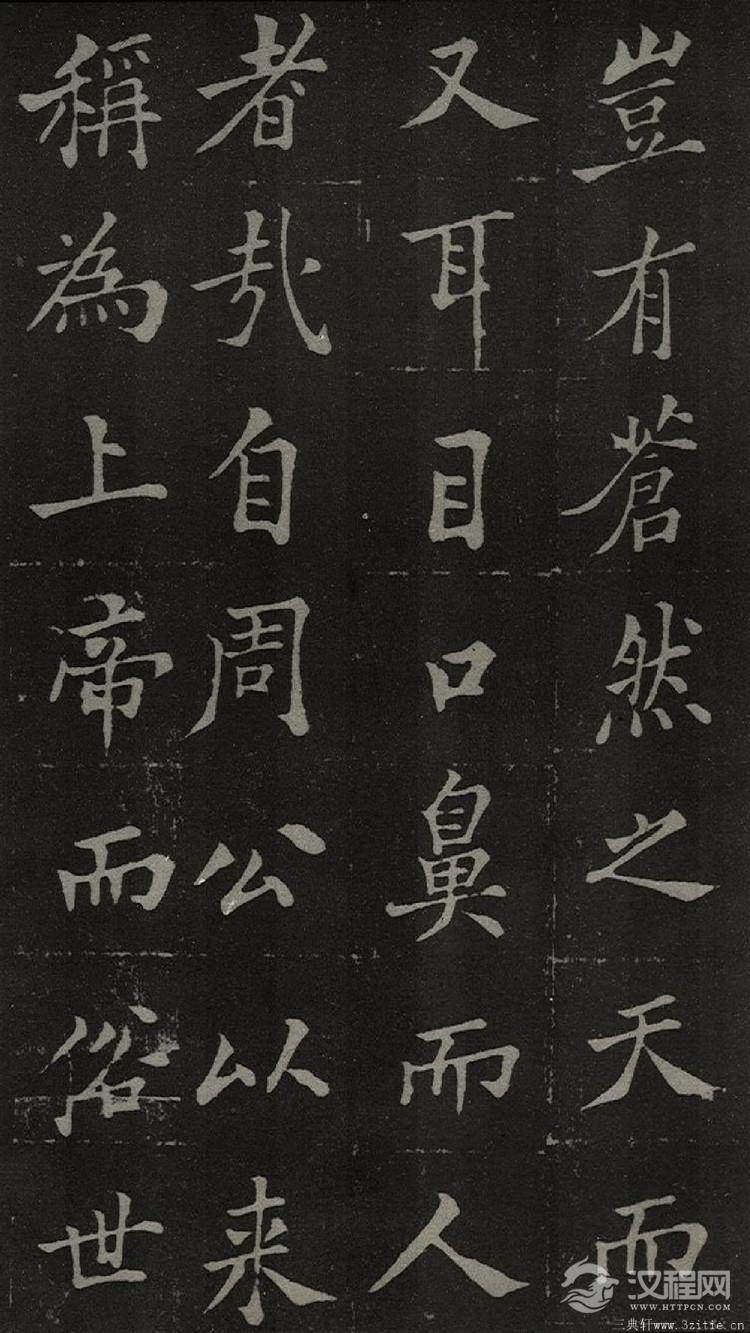 豈有蒼然之天而
又耳目口鼻而人
者哉自周公以来
稱為上帝而俗世
汉程网
WWW.HTTPCN.COM
三典轩www.3zitie.cn